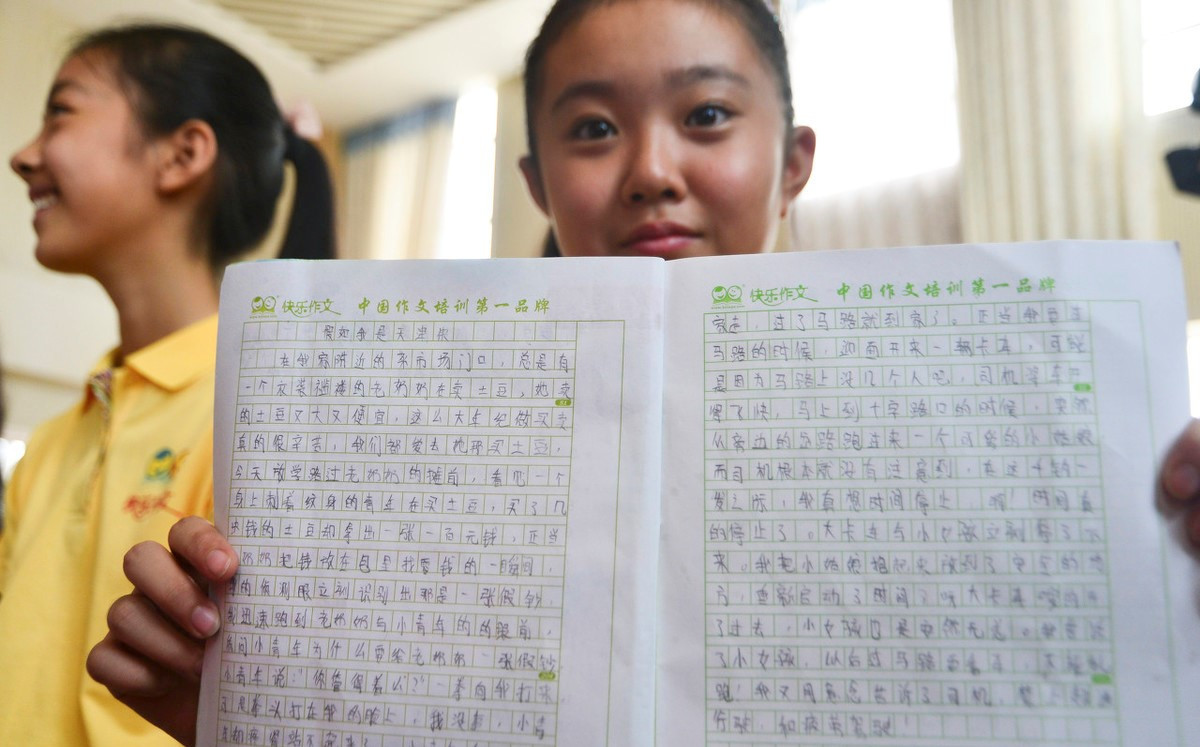 快乐作文 中国作文培训第一品牌
假如我是天
在我家附近的菜市场门口,总是有
一个衣装褴褛的老奶奶在卖土豆,她卖
的土豆又大又便宜,这么大年纪做买卖
真的很辛苦,我们都爱去她那买土豆,
今天放学路过老奶奶的摊前,看见一个
身上刺着纹身的青年在买土豆,买了几
块钱的土豆却拿出一张一百元钱,正当
奶奶把钱放在包里找零钱的一瞬间,
的侦测眼立刻识别出那是一张假钞,
我迅速跑到老奶奶与小青年的的跟前,
质问小青年为什么要给老奶奶一张假钞
小青年说:“你管得着么?”一拳向我打来
拳头打在我的脸上,我没事,小青
快乐作文 中国作文培训第一品牌
家走,过了马路就到家了。正当我要过
马路的时候,迎面开来一辆卡车,可能
是因为马路上没几个人吧,司机将车
得了快,马上到十字路口的时候,突然
从旁边的岔路跑过来一个可爱的小姑娘
而司机根本就没有注意到,在这千钧一
发之际,我真想时间停止,啊!时间真
的停止了。大卡车与小女孩立刻停了下
来。我把小姑娘抱起来放到了安全的地
方,重新启动了时间
了过去,小女孩也是安然无恙。
了小女孩,以后过马路要看车,不能乱
跑!我又用意念告诉了司机,禁止超速
行驶,和疲劳驾驶!